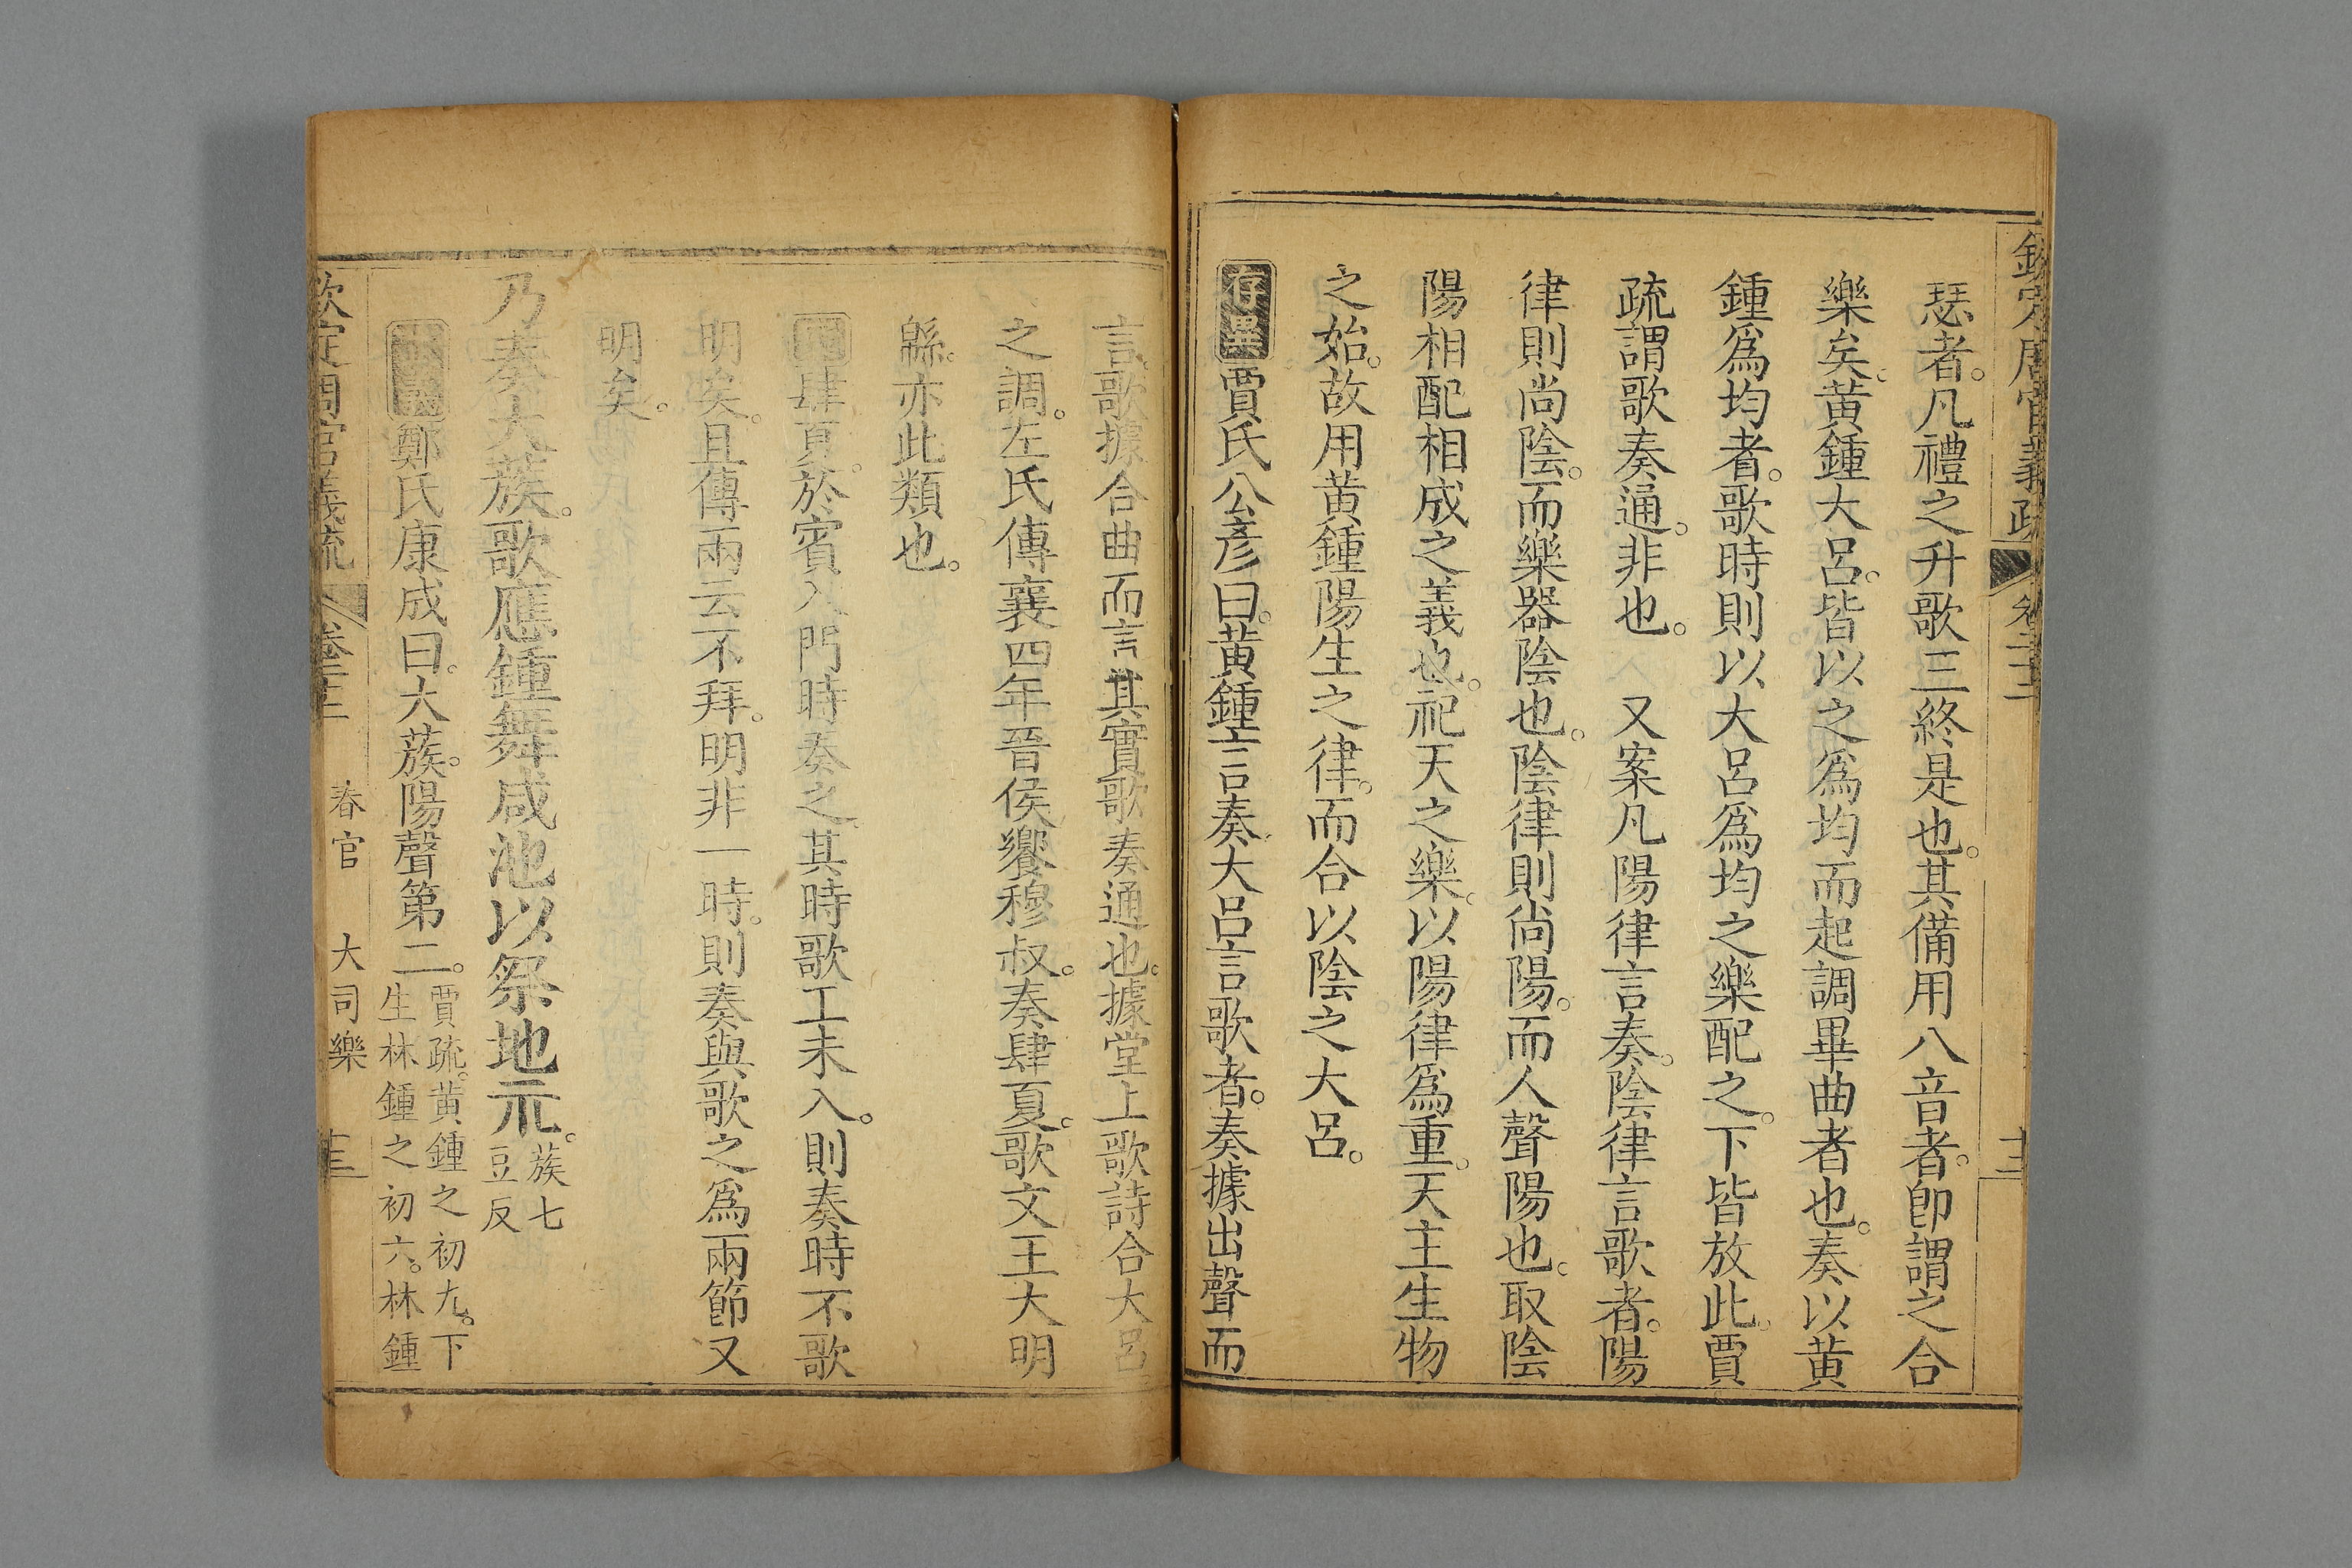 欽定周官義疏 卷二十二 十二
瑟者。凡禮之升歌三終是也。其備用八音者。卽謂之合
樂矣。黃鍾大呂。皆以之爲均而起調畢曲者也。奏以黃
鍾爲均者。歌時則以大呂爲均之樂配之。下皆放此。賈
疏謂歌奏通。非也。 又案凡陽律言奏。陰律言歌者。陽
律則尚陰。而樂器陰也。陰律則尚陽。而人聲陽也。取陰
陽相配相成之義也。祀天之樂。以陽律爲重。天主生物
之始。故用黃鍾陽生之律。而合以陰之大呂。
存異賈氏公彥曰。黃鍾言奏。大呂言歌者。奏據出聲而
言。歌據合曲而言。其實歌奏通也。據堂上歌詩合大呂
之調。左氏傳襄四年晉侯饗穆叔。奏肆夏。歌文王大明
緜。亦此類也。
肆夏。於賓入門時奏之。其時歌工未入。則奏時不歌
明矣。且傳兩云不拜。明非一時。則奏與歌之爲兩節又
明矣。
乃奏大蔟。歌應鍾。舞咸池。以祭地示。蔟七
豆反
鄭氏康成曰。大蔟。陽聲第二。賈疏。黃鍾之初九。下
生林鍾之初六。林鍾
欽定周官義疏 春官 大司樂